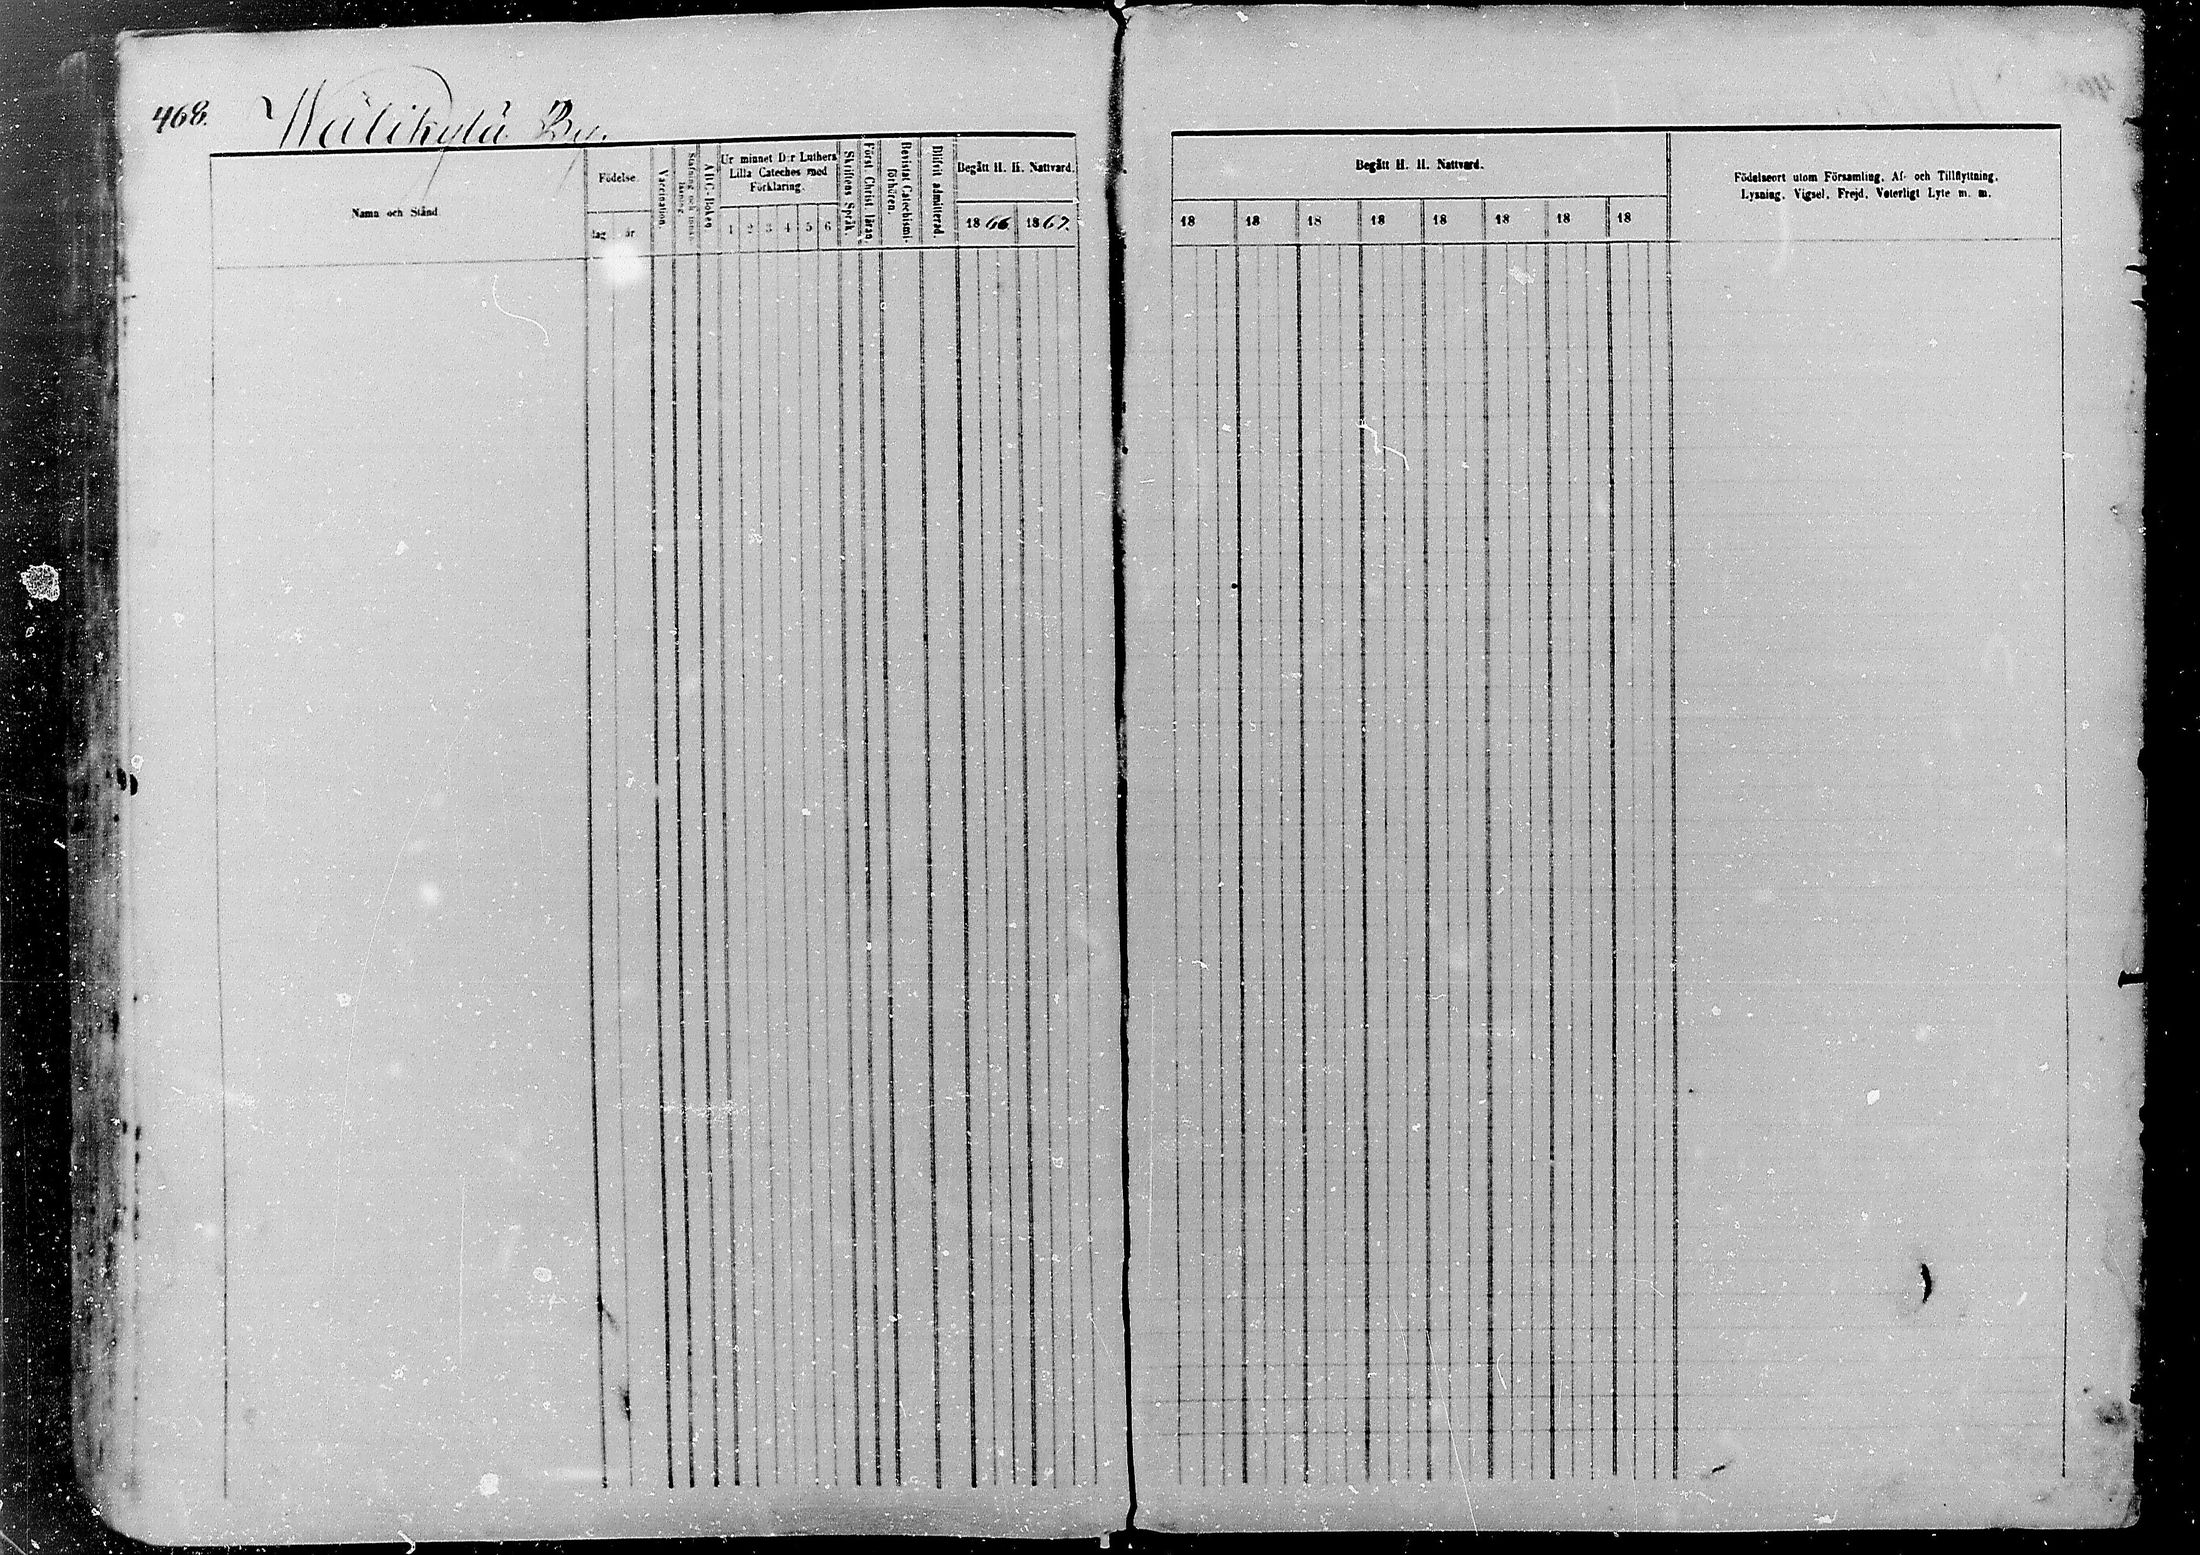 468.
Wälikylä By.
Namn och Stånd
Födelse.
dag
år
Vaccination.
A B C-Boken
Ur minnet D:r Luthers
Lilla Cateches med
Förklaring.
1 2 3 4 5 6
Skriftens Språk.
Först. Christ. läran
Bevistat Catechismi-
förhören.
Blifvit admitterad.
Begått H. H. Nattvard.
1866 1867.
Begått H. H. Nattvard.
18 18 18 18 18 18 18 18
Födelseort utom Församling, Af- och Tillflyttning,
Lysning, Vigsel, Frejd, Veterligt Lyte m. m.